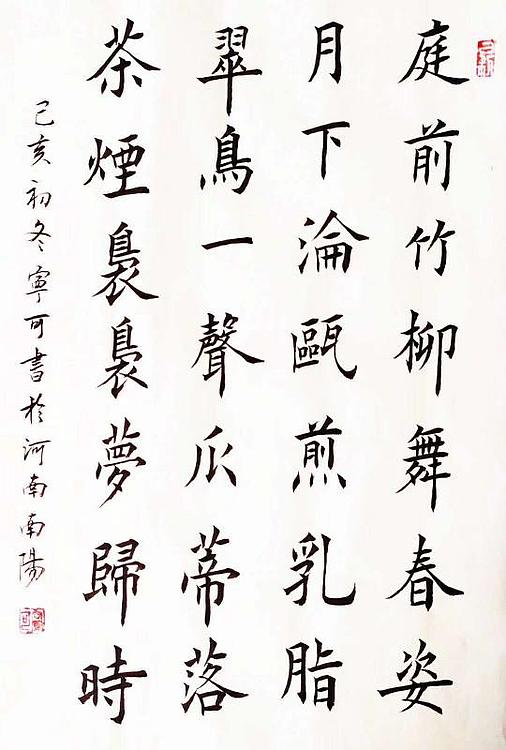 庭前竹柳舞春姿
月下淪甌煎乳脂
翠鳥一聲瓜蒂落
茶煙裊裊夢歸時
己亥初冬寧可書於河南南陽